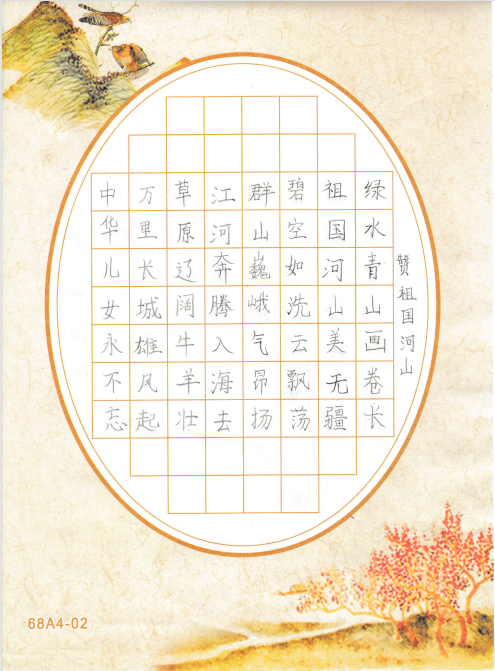 赞祖国河山
绿水青山画卷长
祖国河山美无疆
碧空如洗云飘荡
群山巍峨气昂扬
江河奔腾入海去
草原辽阔牛羊壮
万里长城雄风起
中华儿女永不忘
68A4-02